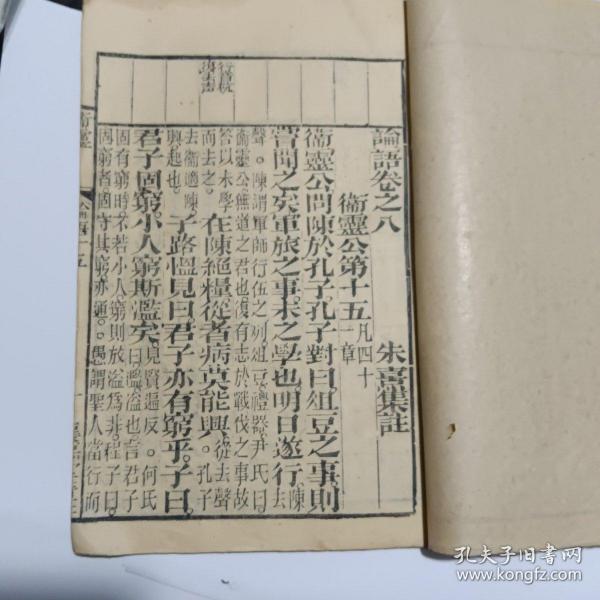 論語卷之八
朱熹集註
衞靈公第十五 凡四十一章
衞靈公問陳於孔子孔子對曰俎豆之事則
嘗聞之矣軍旅之事未之學也明日遂行 陳去
聲。陳謂軍師行伍之列俎豆禮器尹氏曰
衞靈公無道之君也復有志於戰伐之事故
答以未學
而去之。在陳絕糧從者病莫能興。從去聲孔子
去衞適陳
興起也。子路慍見曰君子亦有窮乎。子曰
君子固窮小人窮斯濫矣 見賢遍反。何氏
曰濫溢也言君子
固有窮時不若小人窮則放溢爲非。程子曰
固窮者固守其窮亦通。愚謂聖人當行而
行音杭
衞靈
孔夫子旧书网
www.kongfz.com